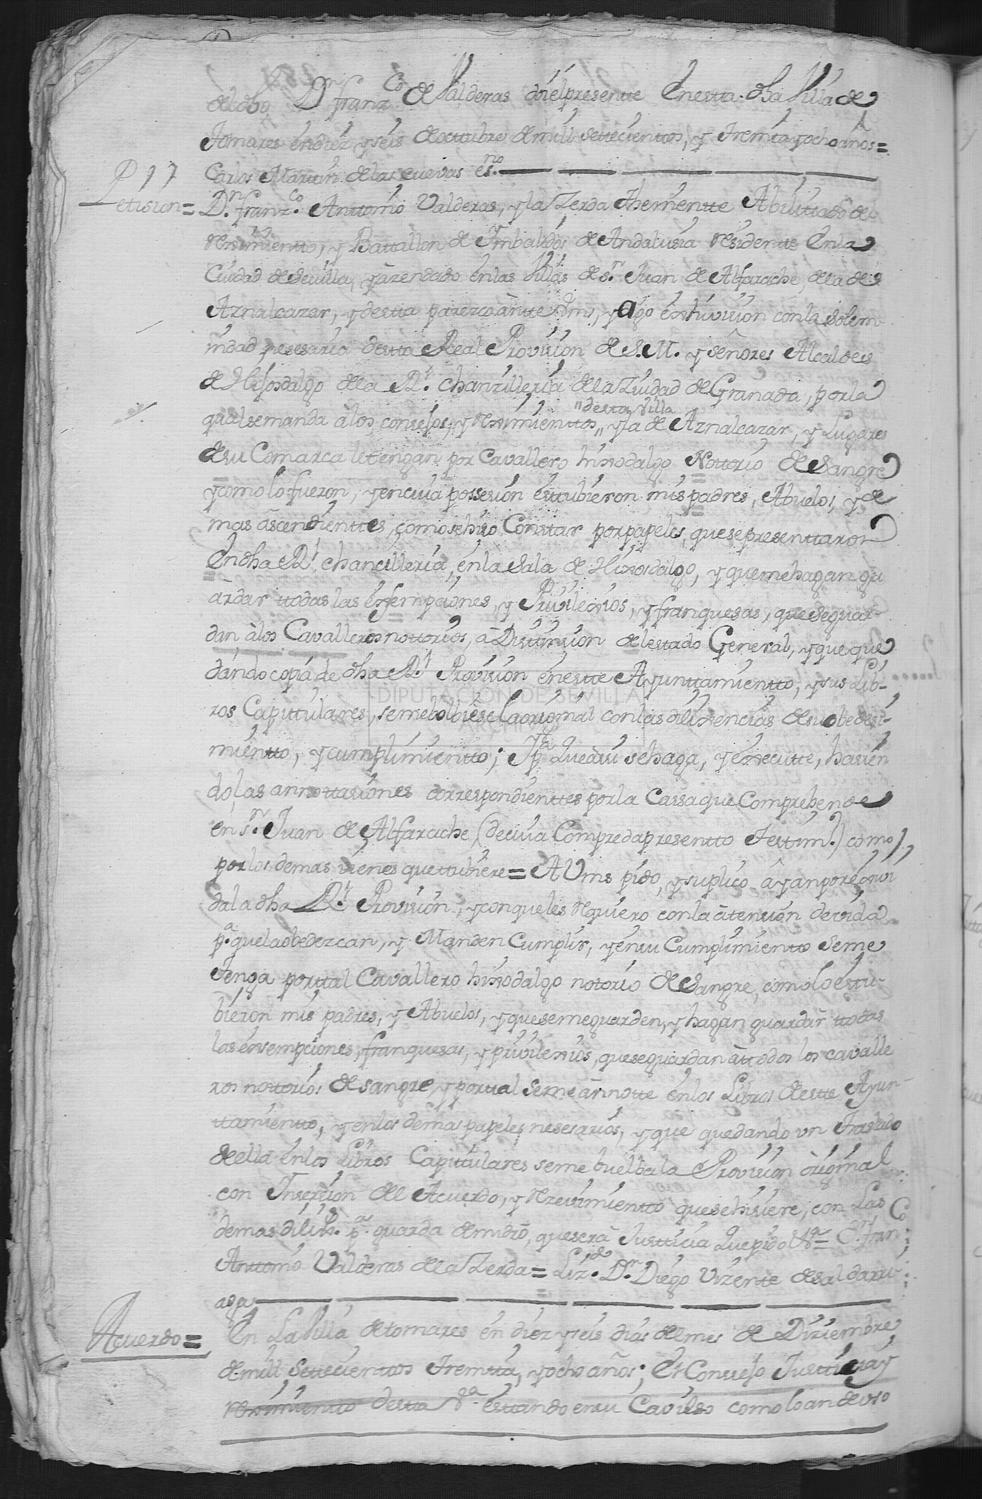 deldho Dn. franzco de Valderas doi el presente Enesta dha Villa de
tomares en diez y seis de octtubre de mill settecienttos, y treinta y ocho años =
Carlos Martin de las cuevas esno
Petision = Dn. franzco Anttonio Valderas, y la Zerda thenientte Abilittado del
rexsimientto, y Battallon de Ymbalidos de Andalusia residente en la
Ciudad de Sevilla, y azendado en las Villas de Sn. Juan de Alfarache, de la de
Aznalcazar, y desta parezco ante Vms, y Ago exsivision con la solem
nidad nesesaria desta Real Provision de S.M. y señores Alcaldes
de Hijosdalgo de la Rl. chanzilleria de la Ziudad de Granada, por la
qual se manda a los consejos, y reximienttos "desta villa" y la de Aznalcazar, y Lugares
de su Comarca le tengan por Cavallero hijosdalgo Nottorio de Sangre
y como lo fueron, y en cuia possesion esttubieron mis padres, Abuelos, y de
mas ascendienttes, como se hiso Constar por papeles, que se presenttaron
En dha Rl. chancilleria, en la sala de Hijosdalgo, y que me hagan gu
ardar ttodas las exsempciones, y Privilexios, y franquesas, que se guar
dan a los Cavalleros nottorios, a Disttinsion del estado General, y que que
dando copia de dha Rl. Provision en este Ayunttamientto, y sus Lib-
ros Capittulares, se me bolbiese la original con las dilixencias de su obedesi-
mientto, y cumplimientto; Y pa. que asi se haga, y execute, hasien
do las annottasiones correspondienttes por la Cassa que Comprehende
DIPUTACION DE SEVILLA
ARCHIVO
en Sn. Juan de Alfarache (de cuia Compreda presentto testtimo.) como
por los demas vienes que ttubiere = A Vms pido, y suplico
da la dha Rl. Provision, y con que les requiero con la atension devida
pa. que la obedezcan, y Manden Cumplir, y en su Cumplimientto se me
tenga por tal Cavallero hijosdalgo notorio de Sangre, como lo esttu-
bieron mis padres, y Abuelos, y que se me guarden, y hagan guardar ttodas
las exsempciones, franquesas, y privilexios, que se guardan a ttodos los cavalle
ros nottorios de sangre, y por tal se me annotte en los Libros de este Ayun-
ttamientto, y en los demas papeles nesesarios, y que quedando un traslado
de ella en los Libros Capittulares se me buelba la Provision original
con Insersion del Acuerdo, y resevimientto que se hisiere, con Las
demas dilixas. pa. guarda de mi dro, que sera Justticia que pido &a = Dn. fran
Anttonio Valderas de la Zerda = Lizdo. Dn. Diego Vizente de Saldarri-
aga
Acuerdo = En La villa de tomares en diez y seis dias del mes de Diziembre
de mill Settecienttos treintta, y ocho años; El Consejo Justticia y
reximientto desta Va. Estando en su Cavildo como lo an de uso